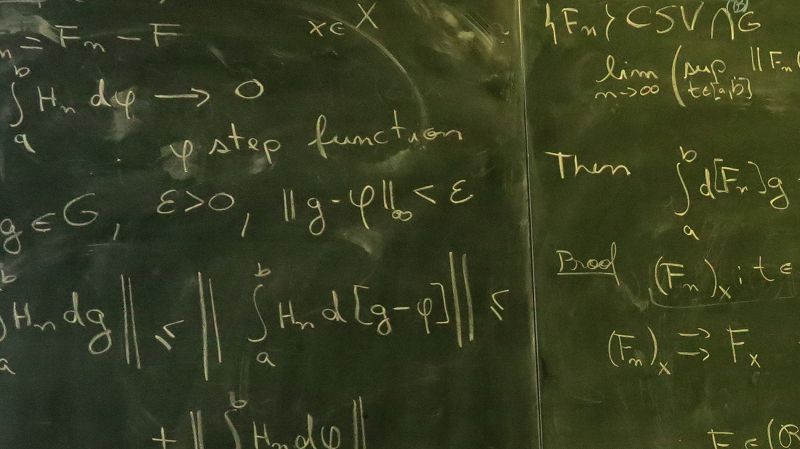 n = Fn − F
x ∈ X
∫_a^b Hn dφ → 0
φ step function
g ∈ G, ε > 0, ‖g-φ‖∞ < ε
∫_a^b Hn dg‖ ≤ ‖∫_a^b Hn d[g-φ]‖ ≤
+ ‖∫^b Hn dφ‖
{Fn} ⊂ SV ∩ G
lim n→∞ (sup t∈[a,b] ‖Fn(
Then ∫_a^b d[Fn]g -
Proof (Fn)x ; t ∈
(Fn)x ⇉ Fx
F ∈ (R